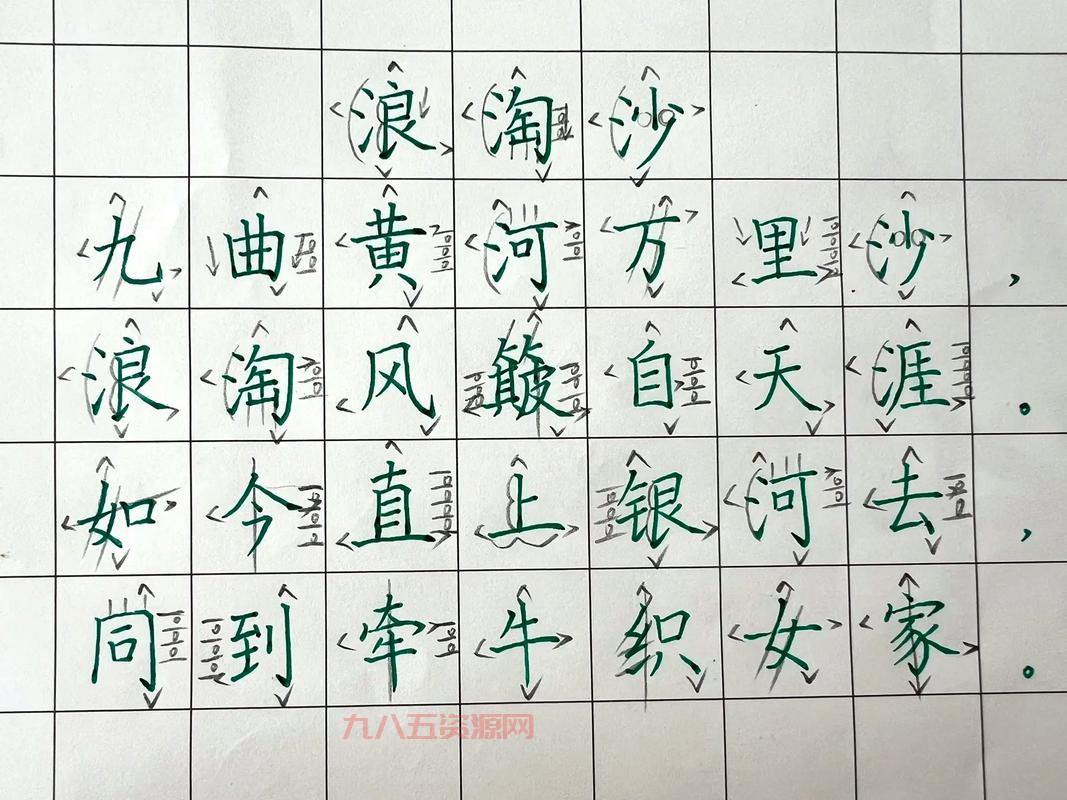 浪淘沙
九曲黄河万里沙，
浪淘风簸自天涯。
如今直上银河去，
同到牵牛织女家。
九八五资源网